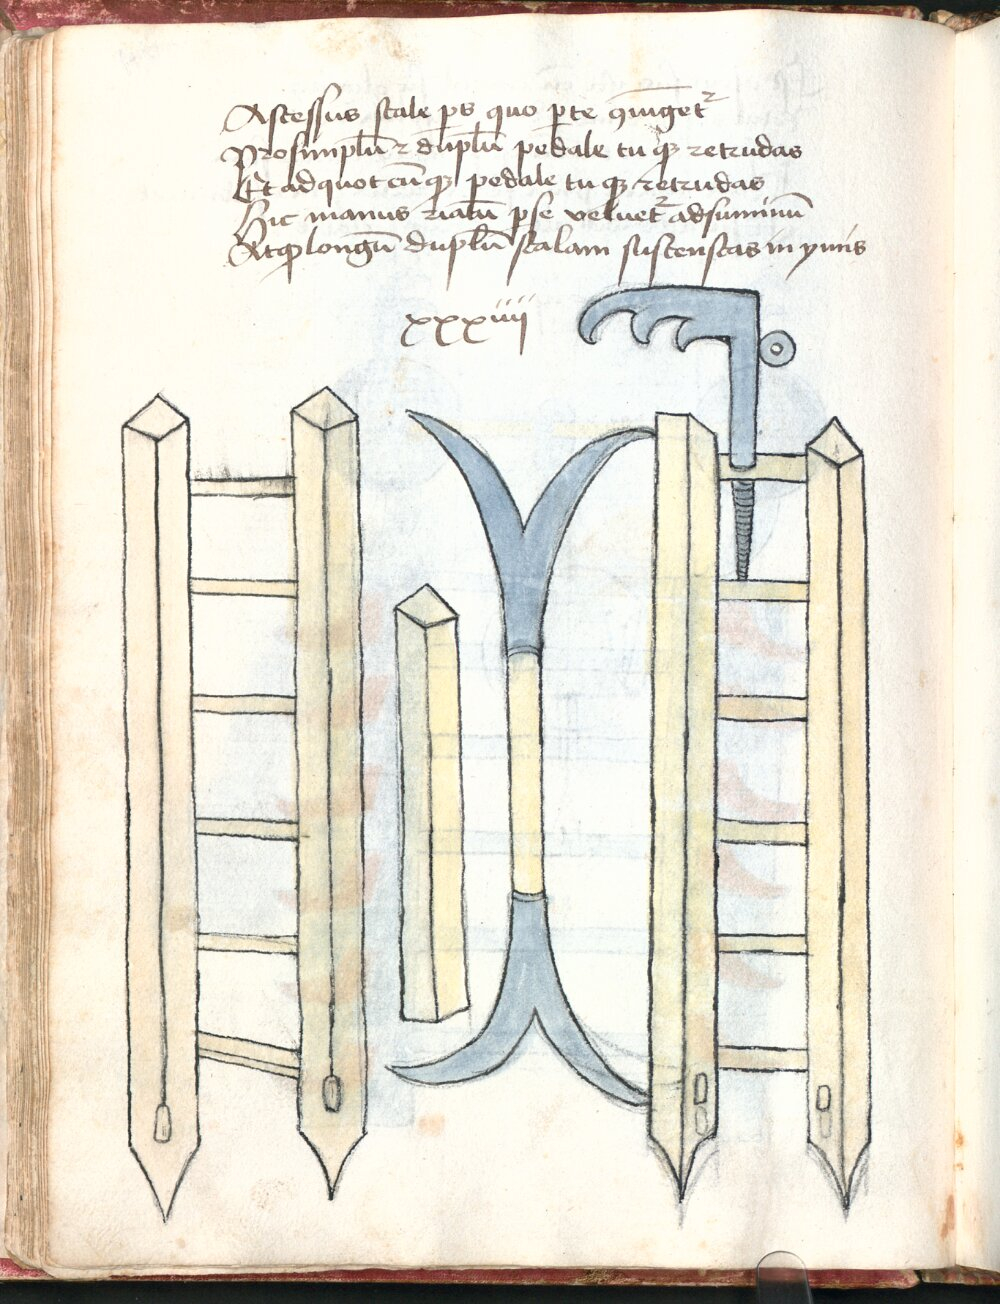 Ascessus scale ps quo pte ꝯiuget᷑
Prosimplu̅ ⁊ duplu̅ pedale tu qꝫ retrudas
Et adquotcu̅qꝫ pedale tu qꝫ retrudas
Hic manus pse veluet᷑ adsummu̅
Atqꝫ longu̅ duplu̅ scalam suscenscas in ymis
xxxiiii